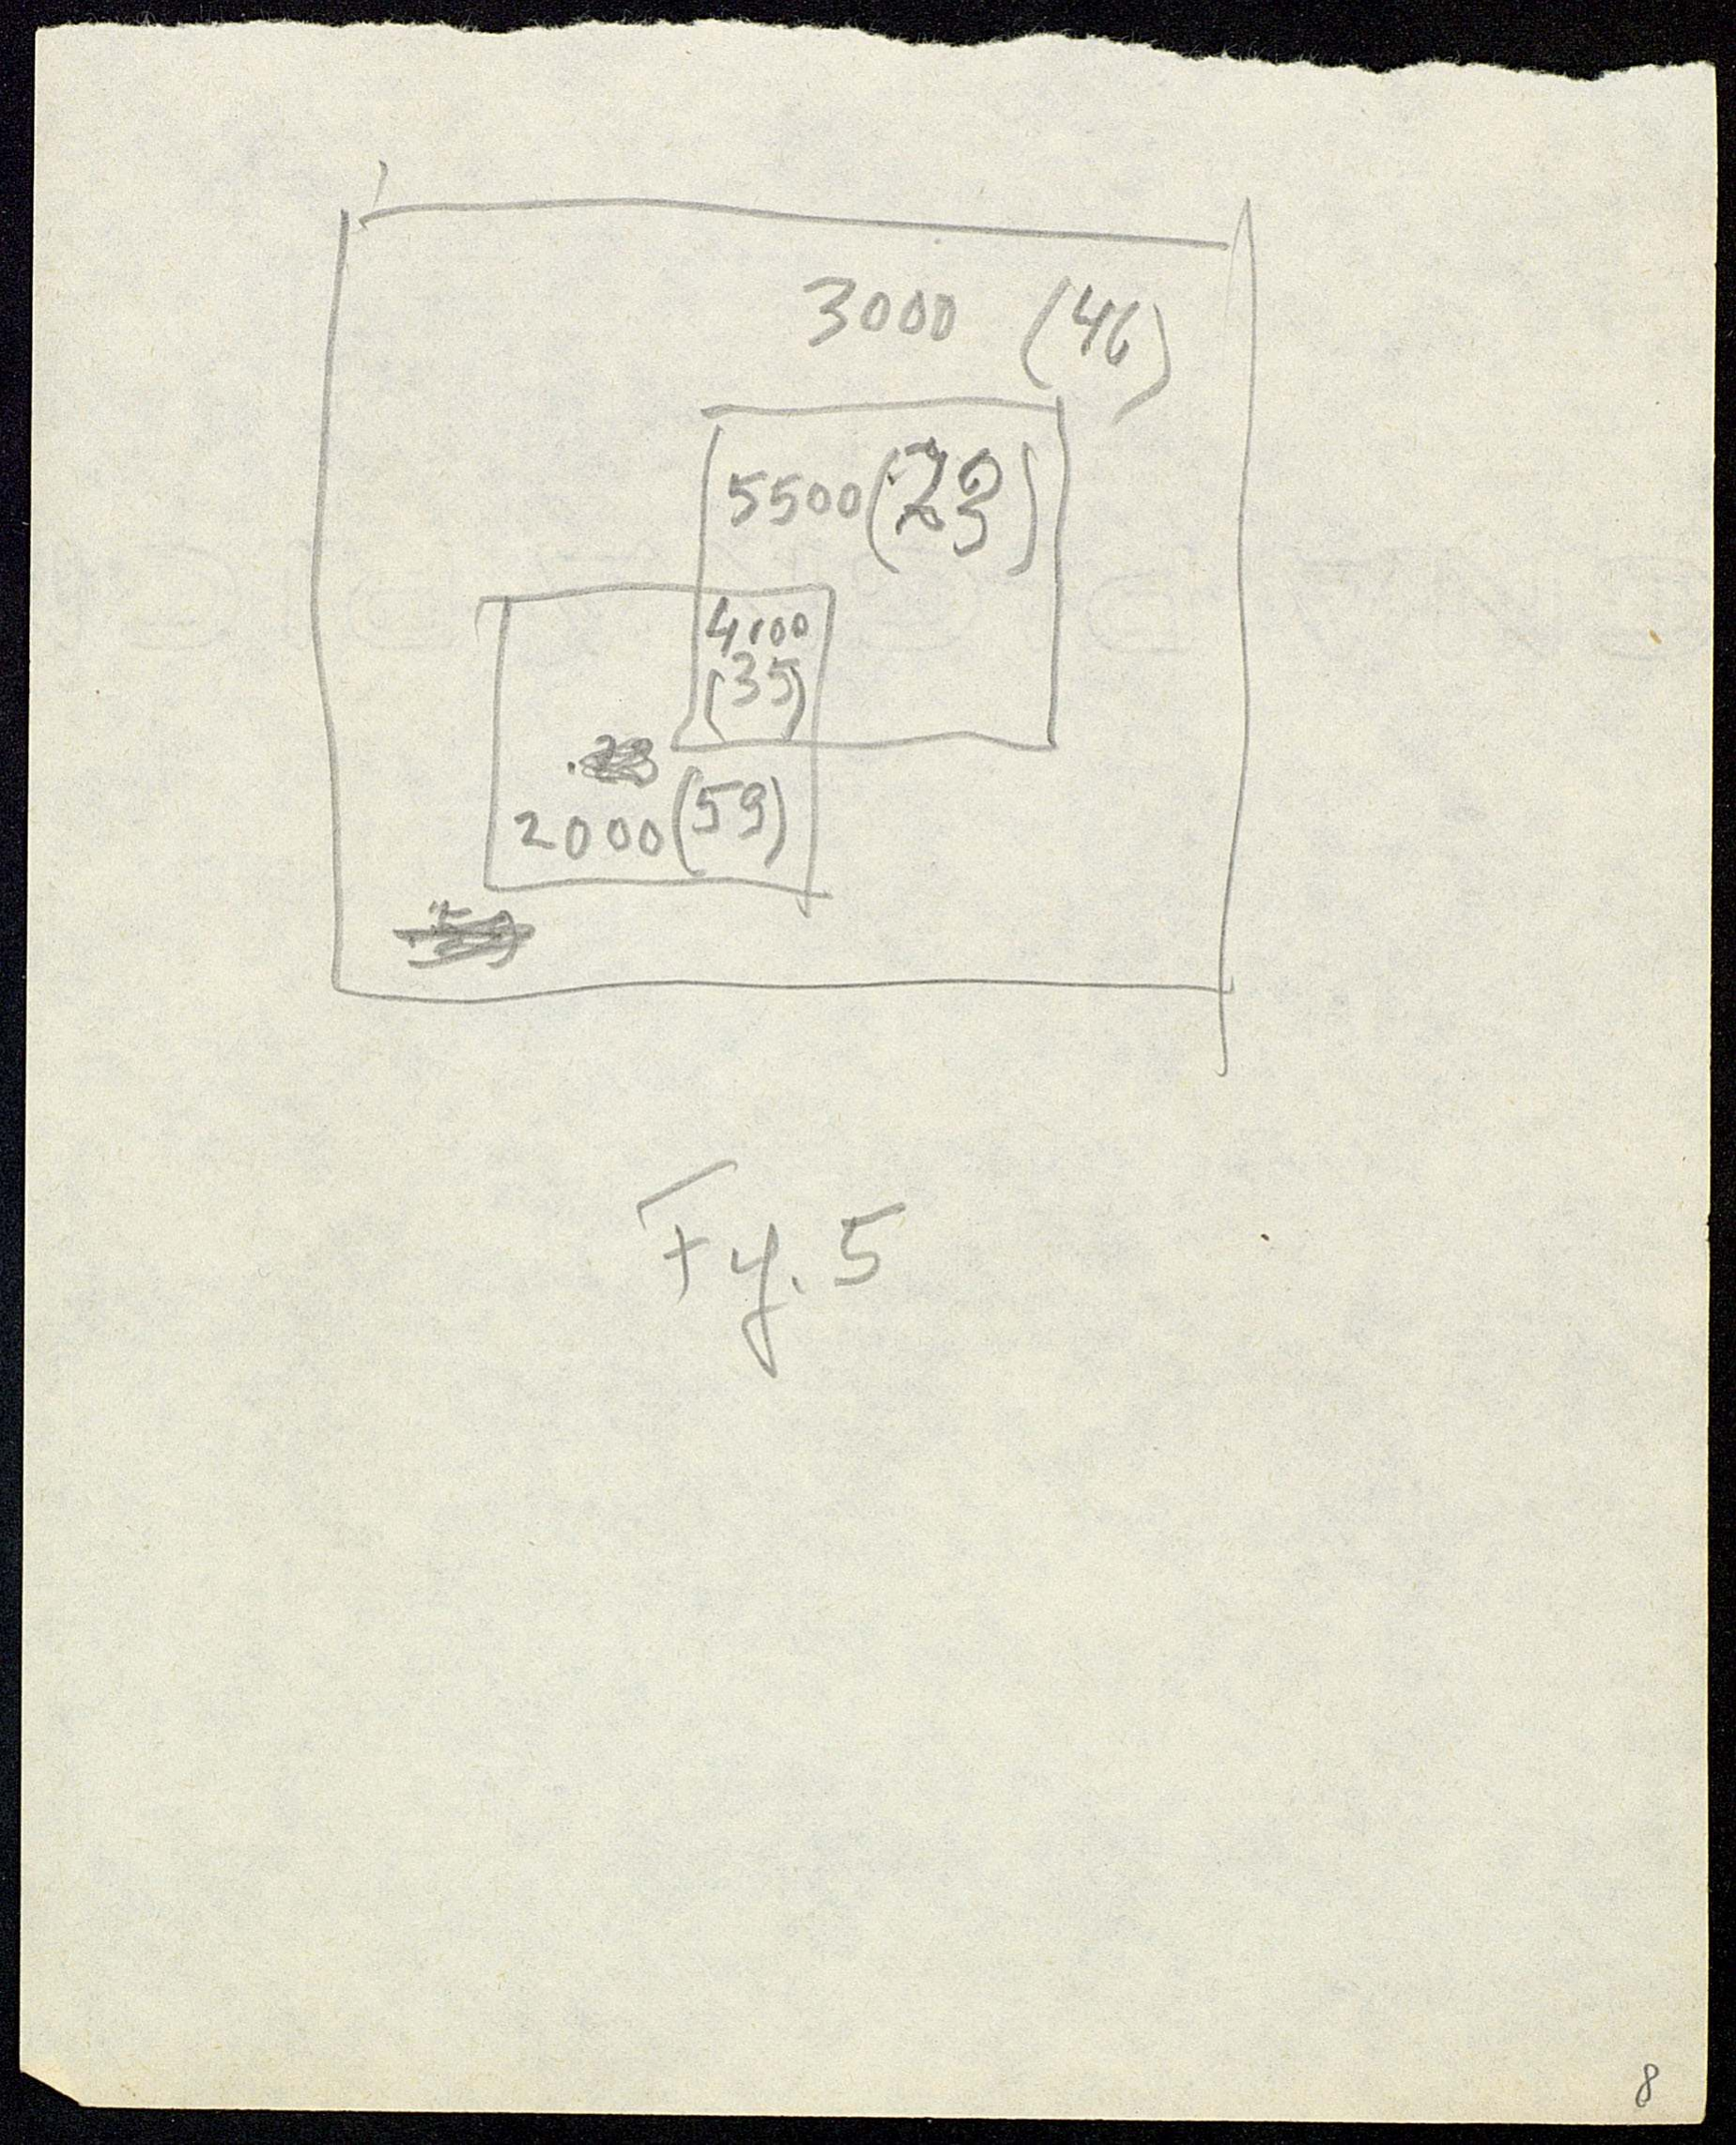 3000 (46)
5500 (23)
4100
(35)
2000 (59)
Fig. 5
8